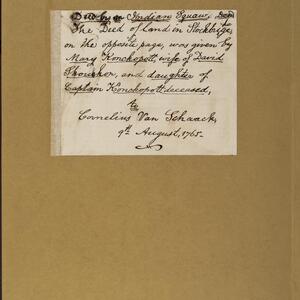 Deed by an Indian Squaw,
The Deed of Land in Stockbridge,
on the opposite page, was given by
Mary Konchopott, wife of David
and daughter of
Captain Konchopott deceased,
to
Cornelius Van Schaack,
9th August, 1765.